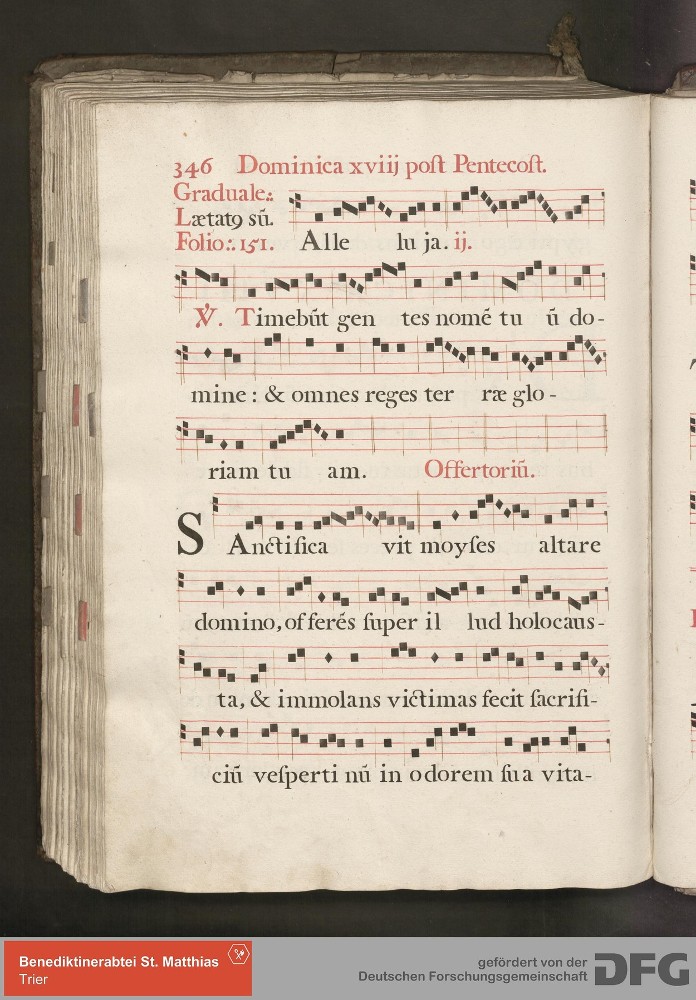 346 Dominica xviij poſt Pentecoſt.
Graduale:.
Lætatꝯ sū.
Folio:. 151. Alle lu ja. ij.
℣. Timebūt gen tes nomē tu ū do-
mine: & omnes reges ter ræ glo-
riam tu am. Offertoriū.
SAnctifica vit moyſes altare
domino, of ferés ſuper il lud holocaus-
ta, & immolans victimas fecit ſacrifi-
ciū veſperti nū in odorem ſua vita-
Benediktinerabtei St. Matthias
Trier
gefördert von der
Deutschen Forschungsgemeinschaft DFG